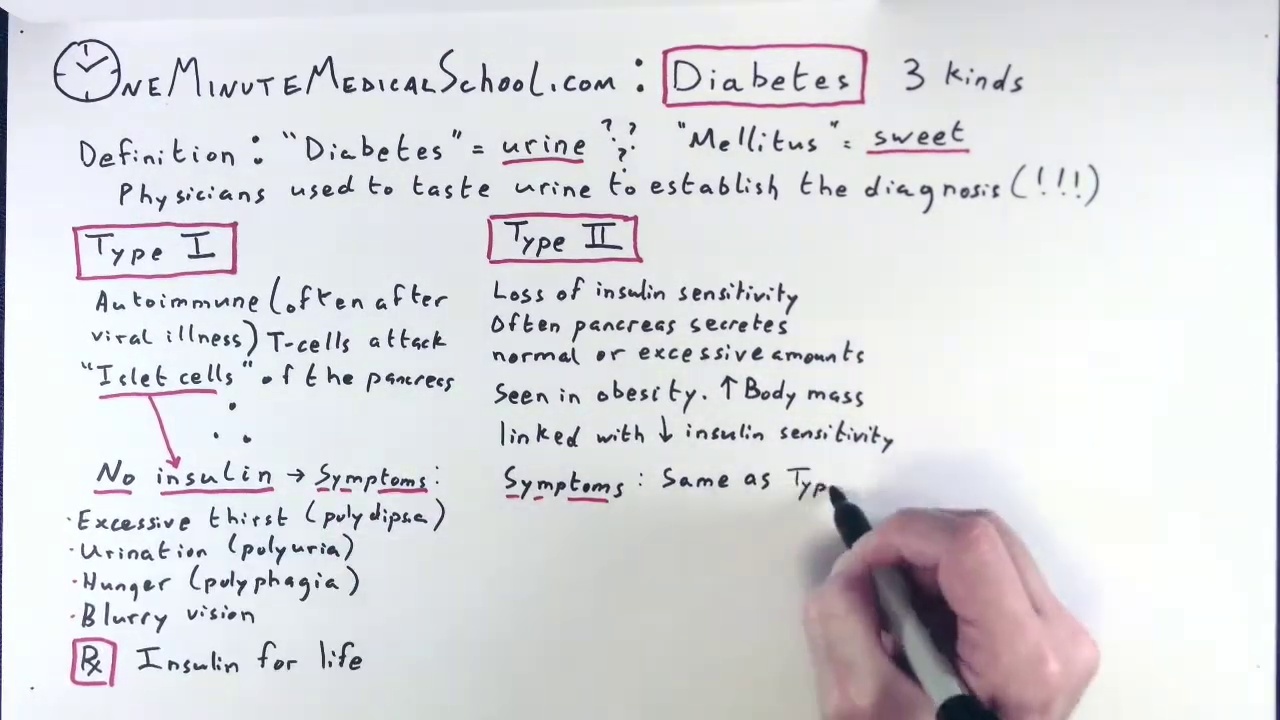 OneMinuteMedicalSchool.com : Diabetes 3 kinds
Definition : "Diabetes" = urine ??? "Mellitus" = sweet
Physicians used to taste urine to establish the diagnosis (!!!)
Type I
Autoimmune (often after
viral illness) T-cells attack
"Islet cells" of the pancreas
No insulin → Symptoms:
· Excessive thirst (polydipsia)
· Urination (polyuria)
· Hunger (polyphagia)
· Blurry vision
Rx Insulin for life
Type II
Loss of insulin sensitivity
Often pancreas secretes
normal or excessive amounts
Seen in obesity. ↑ Body mass
linked with ↓ insulin sensitivity
Symptoms : Same as Typ